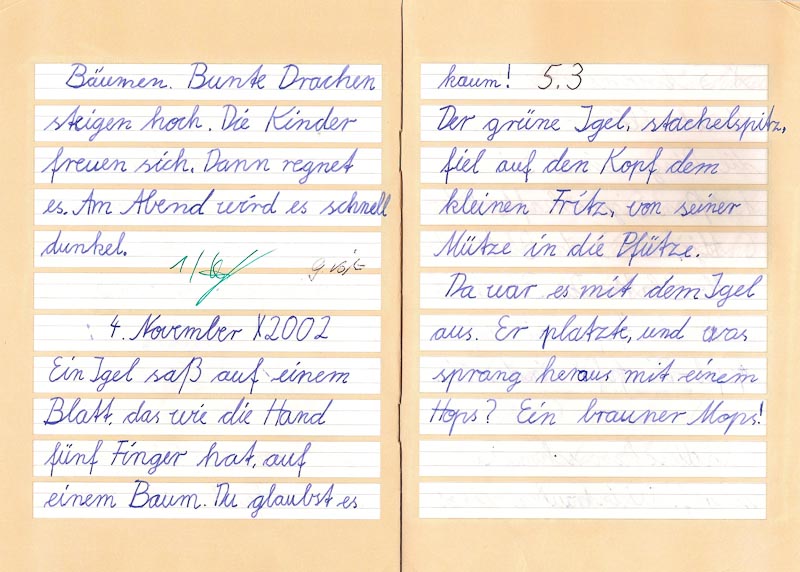 Bäumen. Bunte Drachen
steigen hoch. Die Kinder
freuen sich. Dann regnet
es. Am Abend wird es schnell
dunkel.
1/
4. November X2002
Ein Igel saß auf einem
Blatt, das wie die Hand
fünf Finger hat, auf
einem Baum. Du glaubst es
kaum! 5.3
Der grüne Igel, stachelspitz,
fiel auf den Kopf dem
kleinen Fritz, von seiner
Mütze in die Pfütze.
Da war es mit dem Igel
aus. Er platzte, und was
sprang heraus mit einem
Hops? Ein brauner Mops!